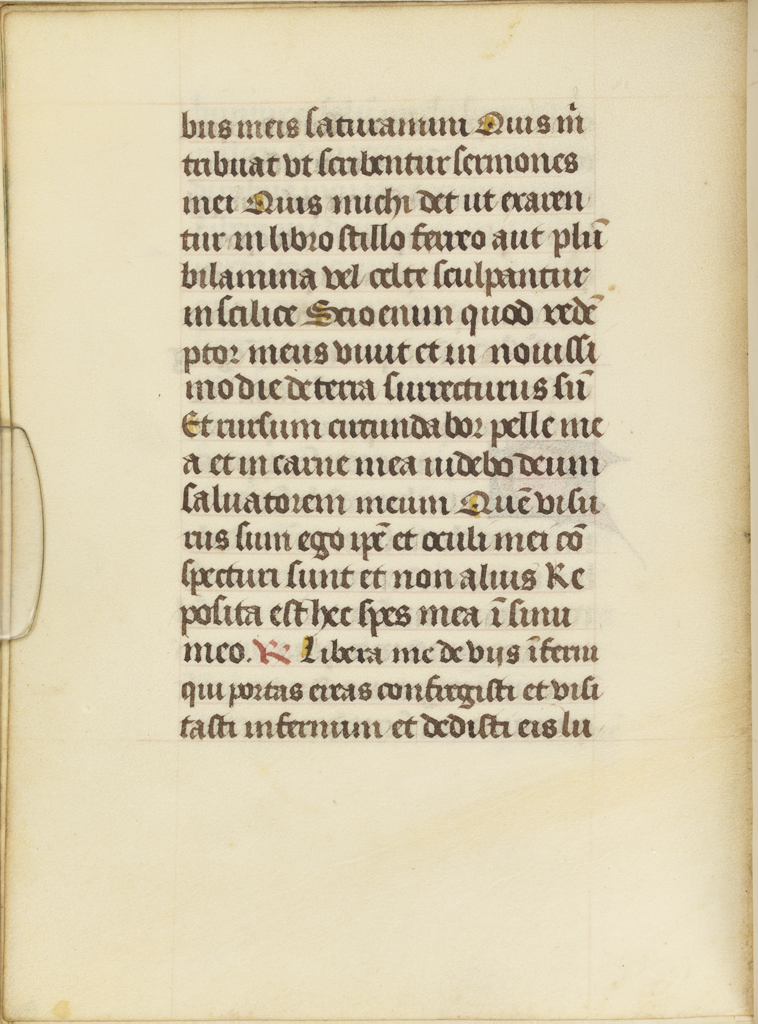 bus meis saturamini Quis m̄
tribuat vt scribentur sermones
mei Quis michi det ut exaren
tur in libro stillo ferreo aut plū
bi lamina vel celte sculpantur
in scilice Scio enim quod redē
ptor meus viuit et in nouissi
mo die de terra surrecturus sū
Et rursum circundabor pelle me
a et in carne mea uidebo deum
saluatorem meum Quē visu
rus sum ego ipē et oculi mei cō
specturi sunt et non alius Re
posita est hec spes mea ī sinu
meo. R Libera me de viis īferni
qui portas ereas confregisti et visi
tasti infernum et dedisti eis lu